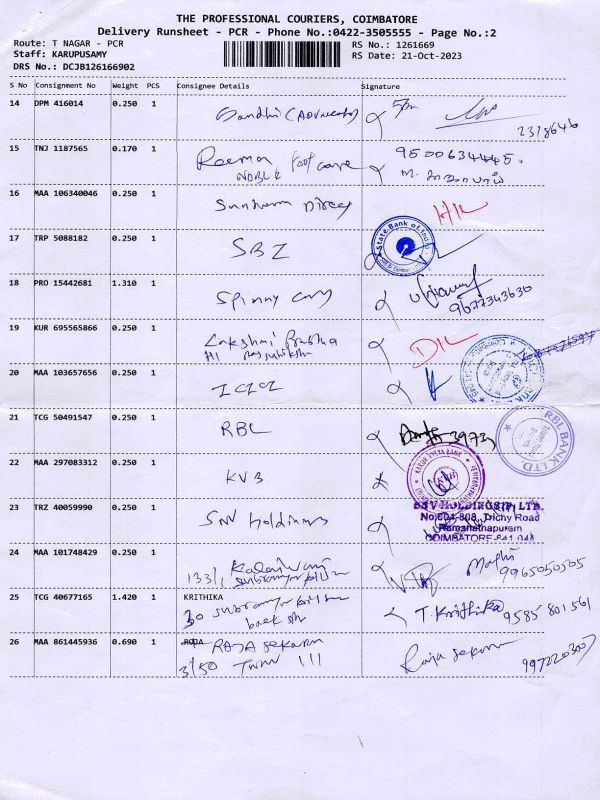 THE PROFESSIONAL COURIERS, COIMBATORE
Delivery Runsheet - PCR - Phone No.:0422-3505555 - Page No.:2
Route: T NAGAR - PCR
RS No.: 1261669
Staff: KARUPUSAMY
RS Date: 21-Oct-2023
DRS No.: DCJB126166902
S No Consignment No Weight PCS Consignee Details Signature
14 DPM 416014 0.250 1 Gandhi (Advocate) 5pm
2378646
15 TNJ 1187565 0.170 1 Reema 9500634445
Noble foot care
16 MAA 106340046 0.250 1 Sundaram Direct
17 TRP 5088182 0.250 1 SBI State Bank of India
18 PRO 15442681 1.310 1 Spinny Cars
9677343630
19 KUR 695565866 0.250 1 Lakshmi
20 MAA 103657656 0.250 1 ICICI
21 TCG 50491547 0.250 1 RBL RBL BANK LTD.
22 MAA 297083312 0.250 1 KVB KARUR VYSYA BANK
23 TRZ 40059990 0.250 1 SNV Holdings
No:604-608, Trichy Road
Ramanathapuram
COIMBATORE-641 045
24 MAA 101748429 0.250 1 Kalaivani
133/1
9965050505
25 TCG 40677165 1.420 1 KRITHIKA T. Krithika 9585 801561
30
26 MAA 861445936 0.690 1 RAJA sekaran Raja sekaran
3/50